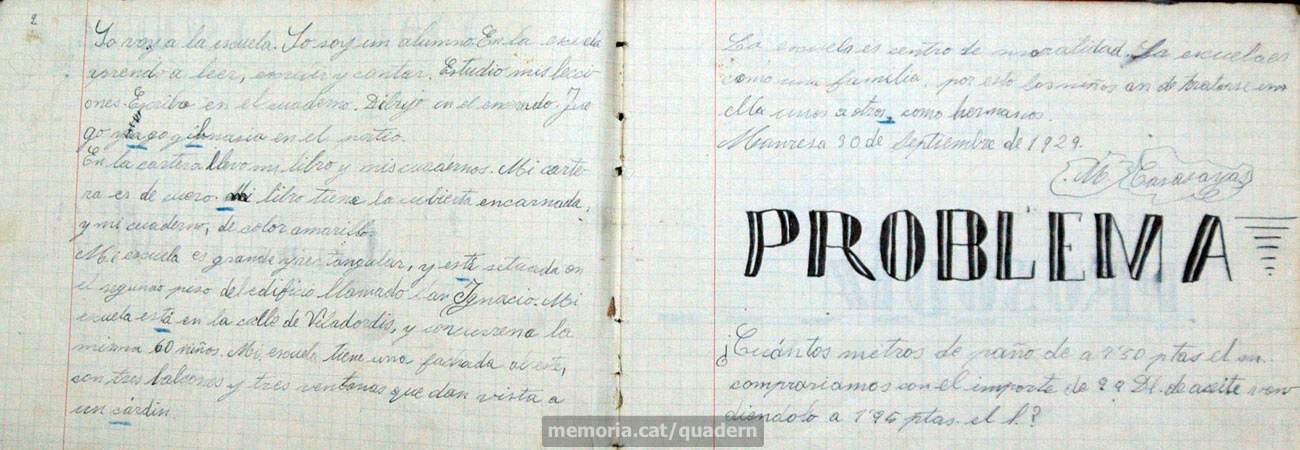 2
Yo voy a la escuela. Yo soy un alumno. En la escuela
aprendo a leer, escribir y contar. Estudio mis lecci
ones. Escribo en el cuaderno. Dibujo en el encerado. Jue
go y gimnasia en el patio.
En la cartera llevo mi libro y mis cuadernos. Mi carte-
ra es de cuero. Mi libro tiene la cubierta encarnada,
y mi cuaderno, de color amarillo.
Mi escuela es grande y rectangular, y está situada en
el segundo piso del edificio llamado San Ignacio. Mi
escuela está en la calle de Viladordis, y concurren a la
misma 60 niños. Mi escuela tiene una fachada al este,
con tres balcones y tres ventanas que dan vista a
un cardin.
La escuela es centro de moralidad. La escuela es
como una familia, por esto los niños an de tratarse en
ella unos a otros, como hermanos.
Manresa 30 de Septiembre de 1929.
M. Casasayas
PROBLEMA
¿Cuántos metros de paño de a 7'50 ptas el m.
comprariamos con el importe de Dl. de aceite ven
diendolo a 1'95 ptas. el l.?
memoria.cat/quadern